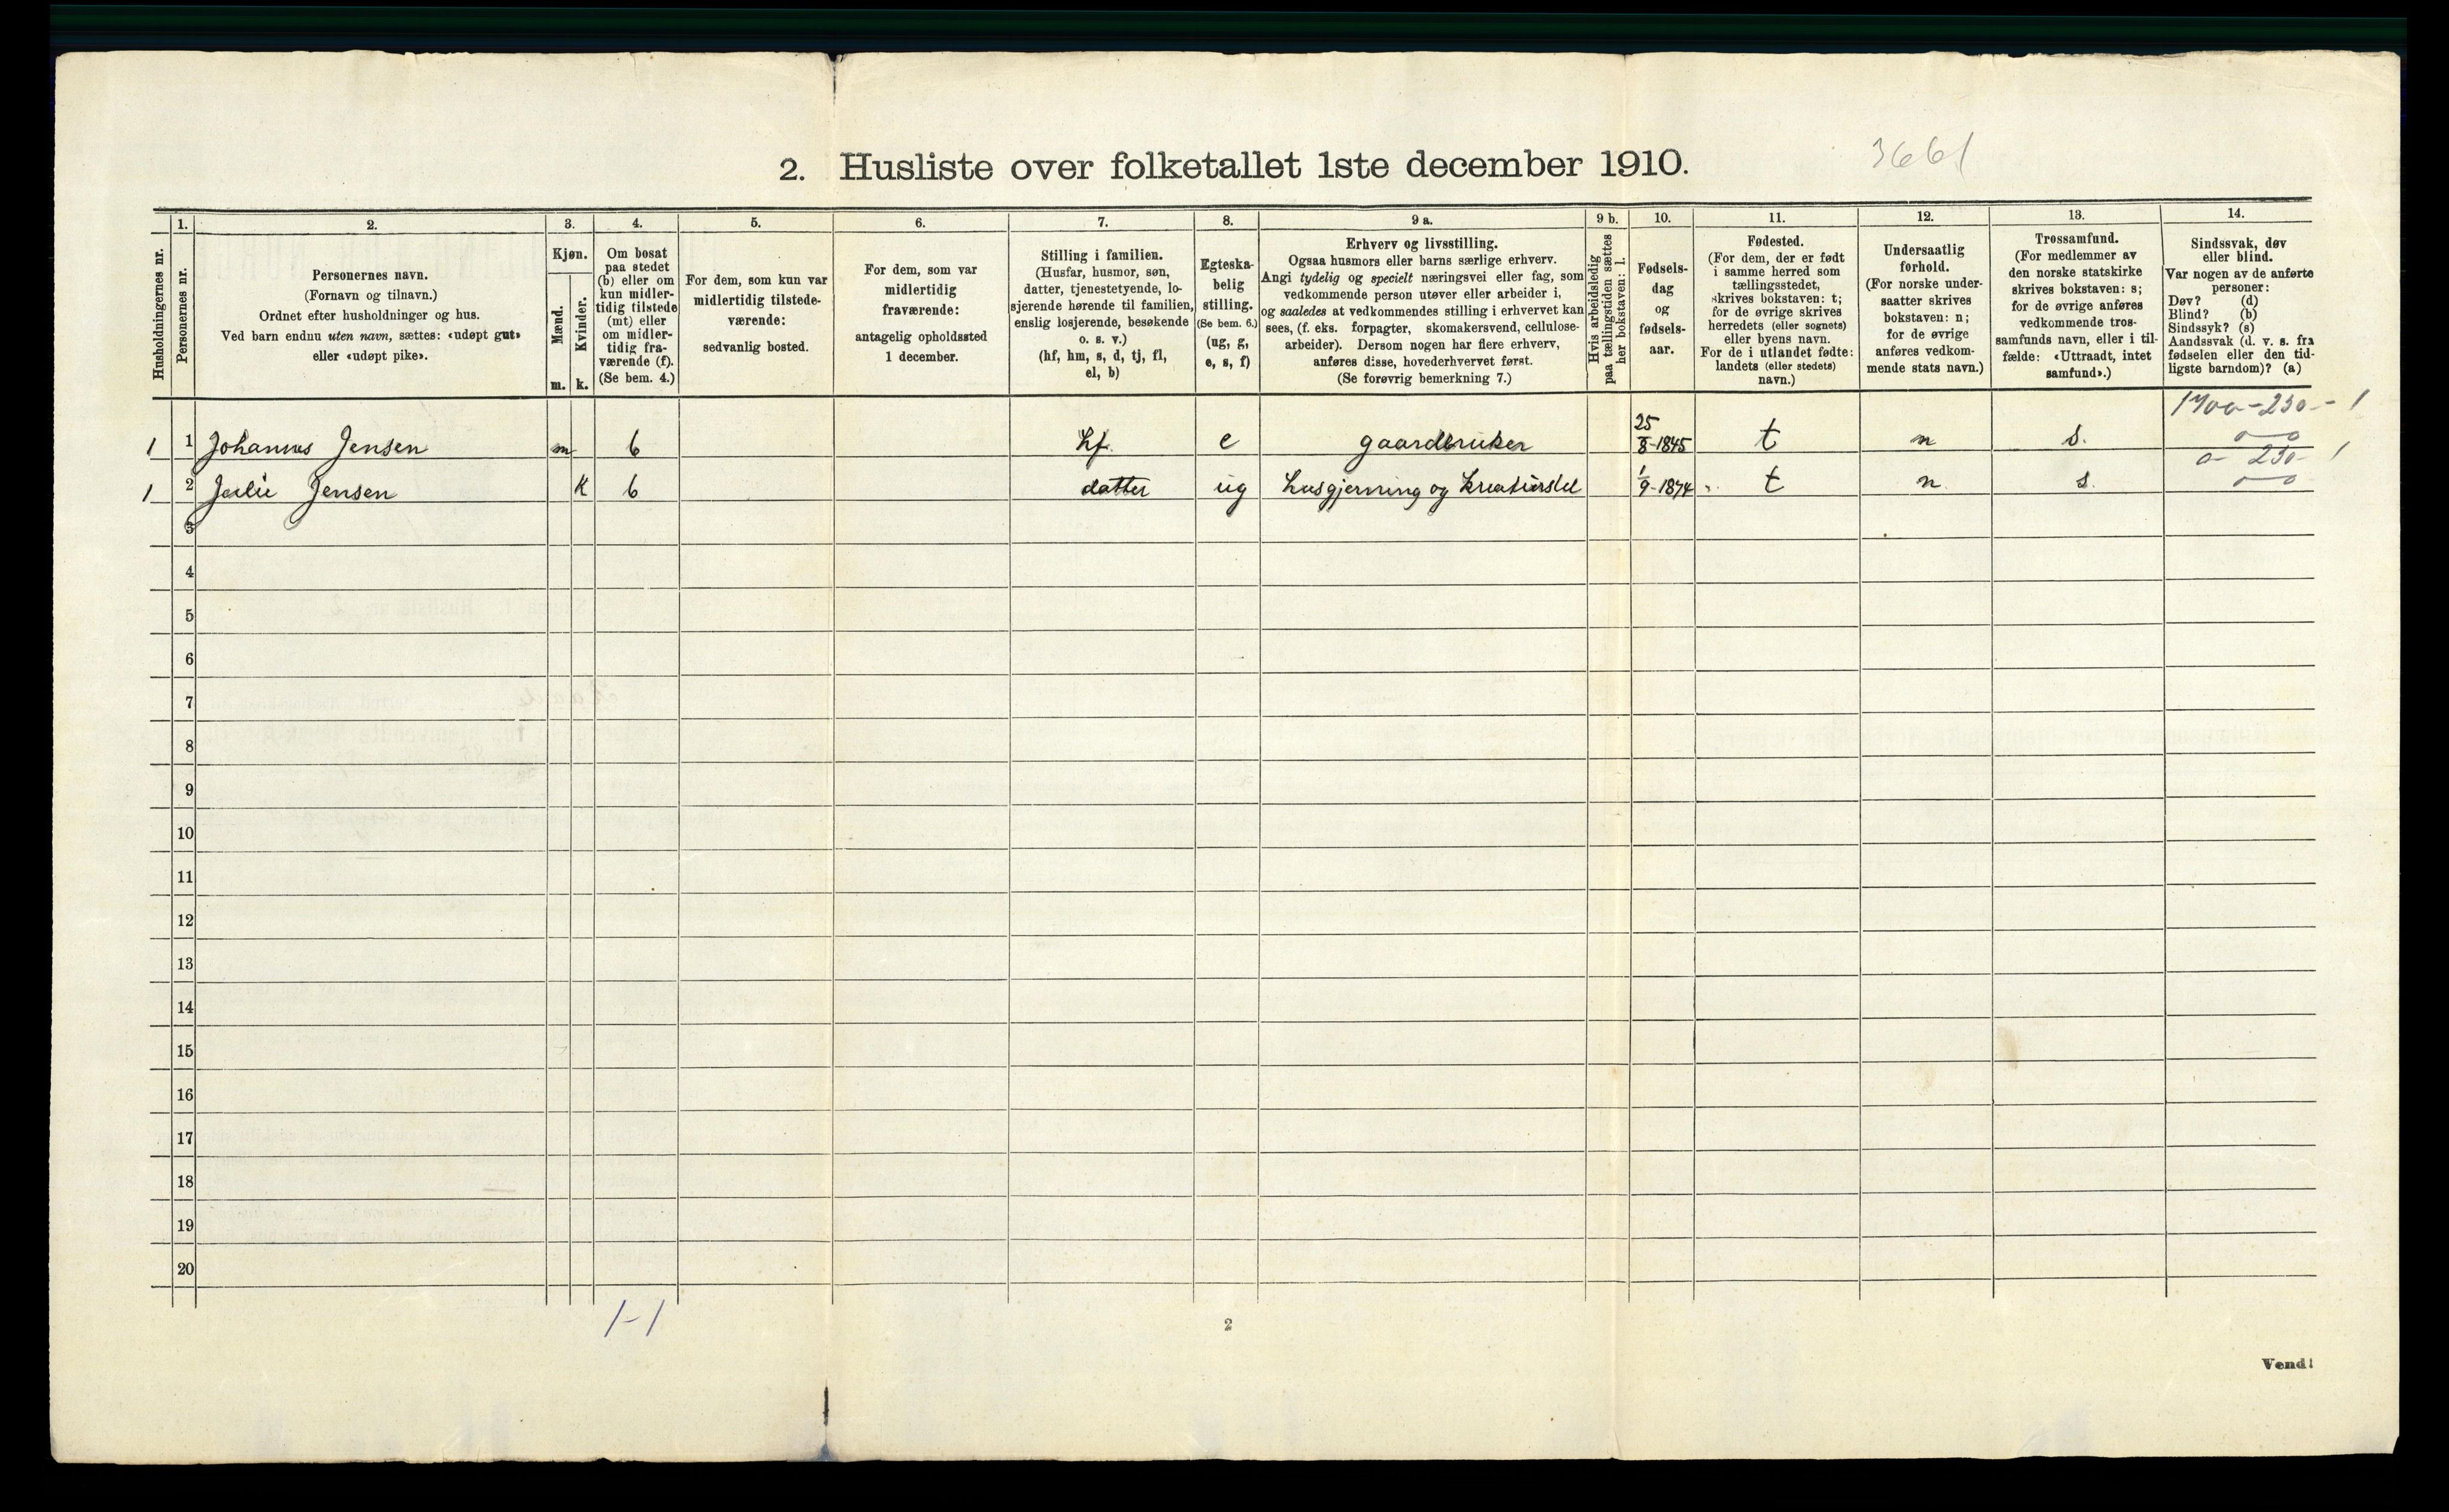 2. Husliste over folketallet 1ste december 1910.
3661
1. 2. 3. 4. 5. 6. 7. 8. 9 a. 9 b. 10. 11. 12. 13. 14.
Husholdningernes nr.
Personernes nr.
Personernes navn.
(Fornavn og tilnavn.)
Ordnet efter husholdninger og hus.
Ved barn endnu uten navn, sættes: «udøpt gut»
eller «udøpt pike».
Kjøn.
Mænd.
Kvinder.
m. k.
Om bosat
paa stedet
(b) eller om
kun midler-
tidig tilstede
(mt) eller
om midler-
tidig fra-
værende (f).
(Se bem. 4.)
For dem, som kun var
midlertidig tilstede-
værende:
sedvanlig bosted.
For dem, som var
midlertidig
fraværende:
antagelig opholdssted
1 december.
Stilling i familien.
(Husfar, husmor, søn,
datter, tjenestetyende, lo-
sjerende hørende til familien,
enslig losjerende, besøkende
o. s. v.)
(hf, hm, s, d, tj, fl,
el, b)
Egteska-
belig
stilling.
(Se bem. 6.)
(ug, g,
e, s, f)
Erhverv og livsstilling.
Ogsaa husmors eller barns særlige erhverv.
Angi tydelig og specielt næringsvei eller fag, som
vedkommende person utøver eller arbeider i,
og saaledes at vedkommendes stilling i erhvervet kan
sees, (f. eks. forpagter, skomakersvend, cellulose-
arbeider). Dersom nogen har flere erhverv,
anføres disse, hovederhvervet først.
(Se forøvrig bemerkning 7.)
Hvis arbeidsledig
paa tællingstiden sættes
her bokstaven: l.
Fødsels-
dag
og
fødsels-
aar.
Fødested.
(For dem, der er født
i samme herred som
tællingsstedet,
skrives bokstaven: t;
for de øvrige skrives
herredets (eller sognets)
eller byens navn.
For de i utlandet fødte:
landets (eller stedets)
navn.)
Undersaatlig
forhold.
(For norske under-
saatter skrives
bokstaven: n;
for de øvrige
anføres vedkom-
mende stats navn.)
Trossamfund.
(For medlemmer av
den norske statskirke
skrives bokstaven: s;
for de øvrige anføres
vedkommende tros-
samfunds navn, eller i til-
fælde: «Uttraadt, intet
samfund».)
Sindssvak, døv
eller blind.
Var nogen av de anførte
personer:
Døv? (d)
Blind? (b)
Sindssyk? (s)
Aandssvak (d. v. s. fra
fødselen eller den tid-
ligste barndom)? (a)
1700-230-- 1
1 1 Johannes Jensen m b hf. e gaardbruker 25/8-1845 t n s. 0-0
0- 230- 1
1 2 Julie Jensen k b datter ug husgjerning og kreaturstel 1/9-1874 t n s. 0-0
3
4
5
6
7
8
9
10
11
12
13
14
15
16
17
18
19
20
1-1
2
Vend!